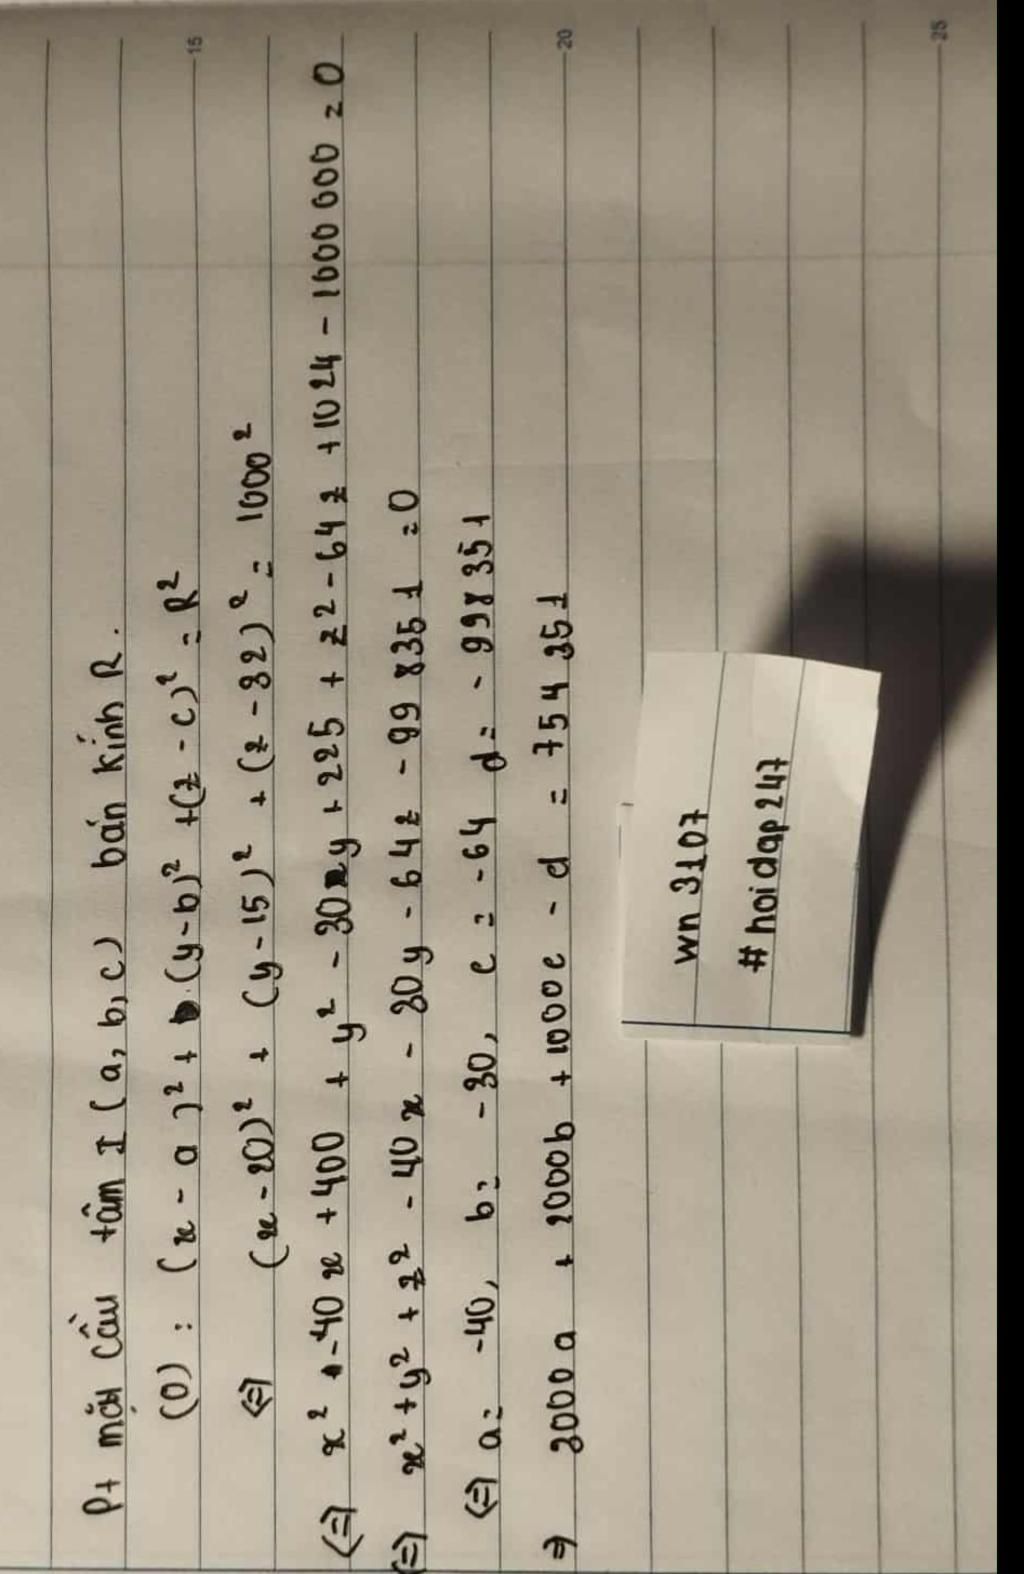 Pt mặt cầu tâm I (a, b, c) bán kính R.
(0) : (x - a)² + (y-b)² +(z - c)² = R²
(=) (x - 20)² + (y-15)² + (z - 32)² = 1000²
(=) x² - 40x + 400 + y² - 30y + 225 + z2 - 64z + 1024 - 1000 000 = 0
(=) x² + y² + z² - 40x - 30y - 64z - 99 8351 = 0
(=) a = -40, b = -30, c = -64 d = - 998351
⇒ 3000a + 2000b + 1000c - d = 754 351
wn 3107
# hoidap247
15
20
25